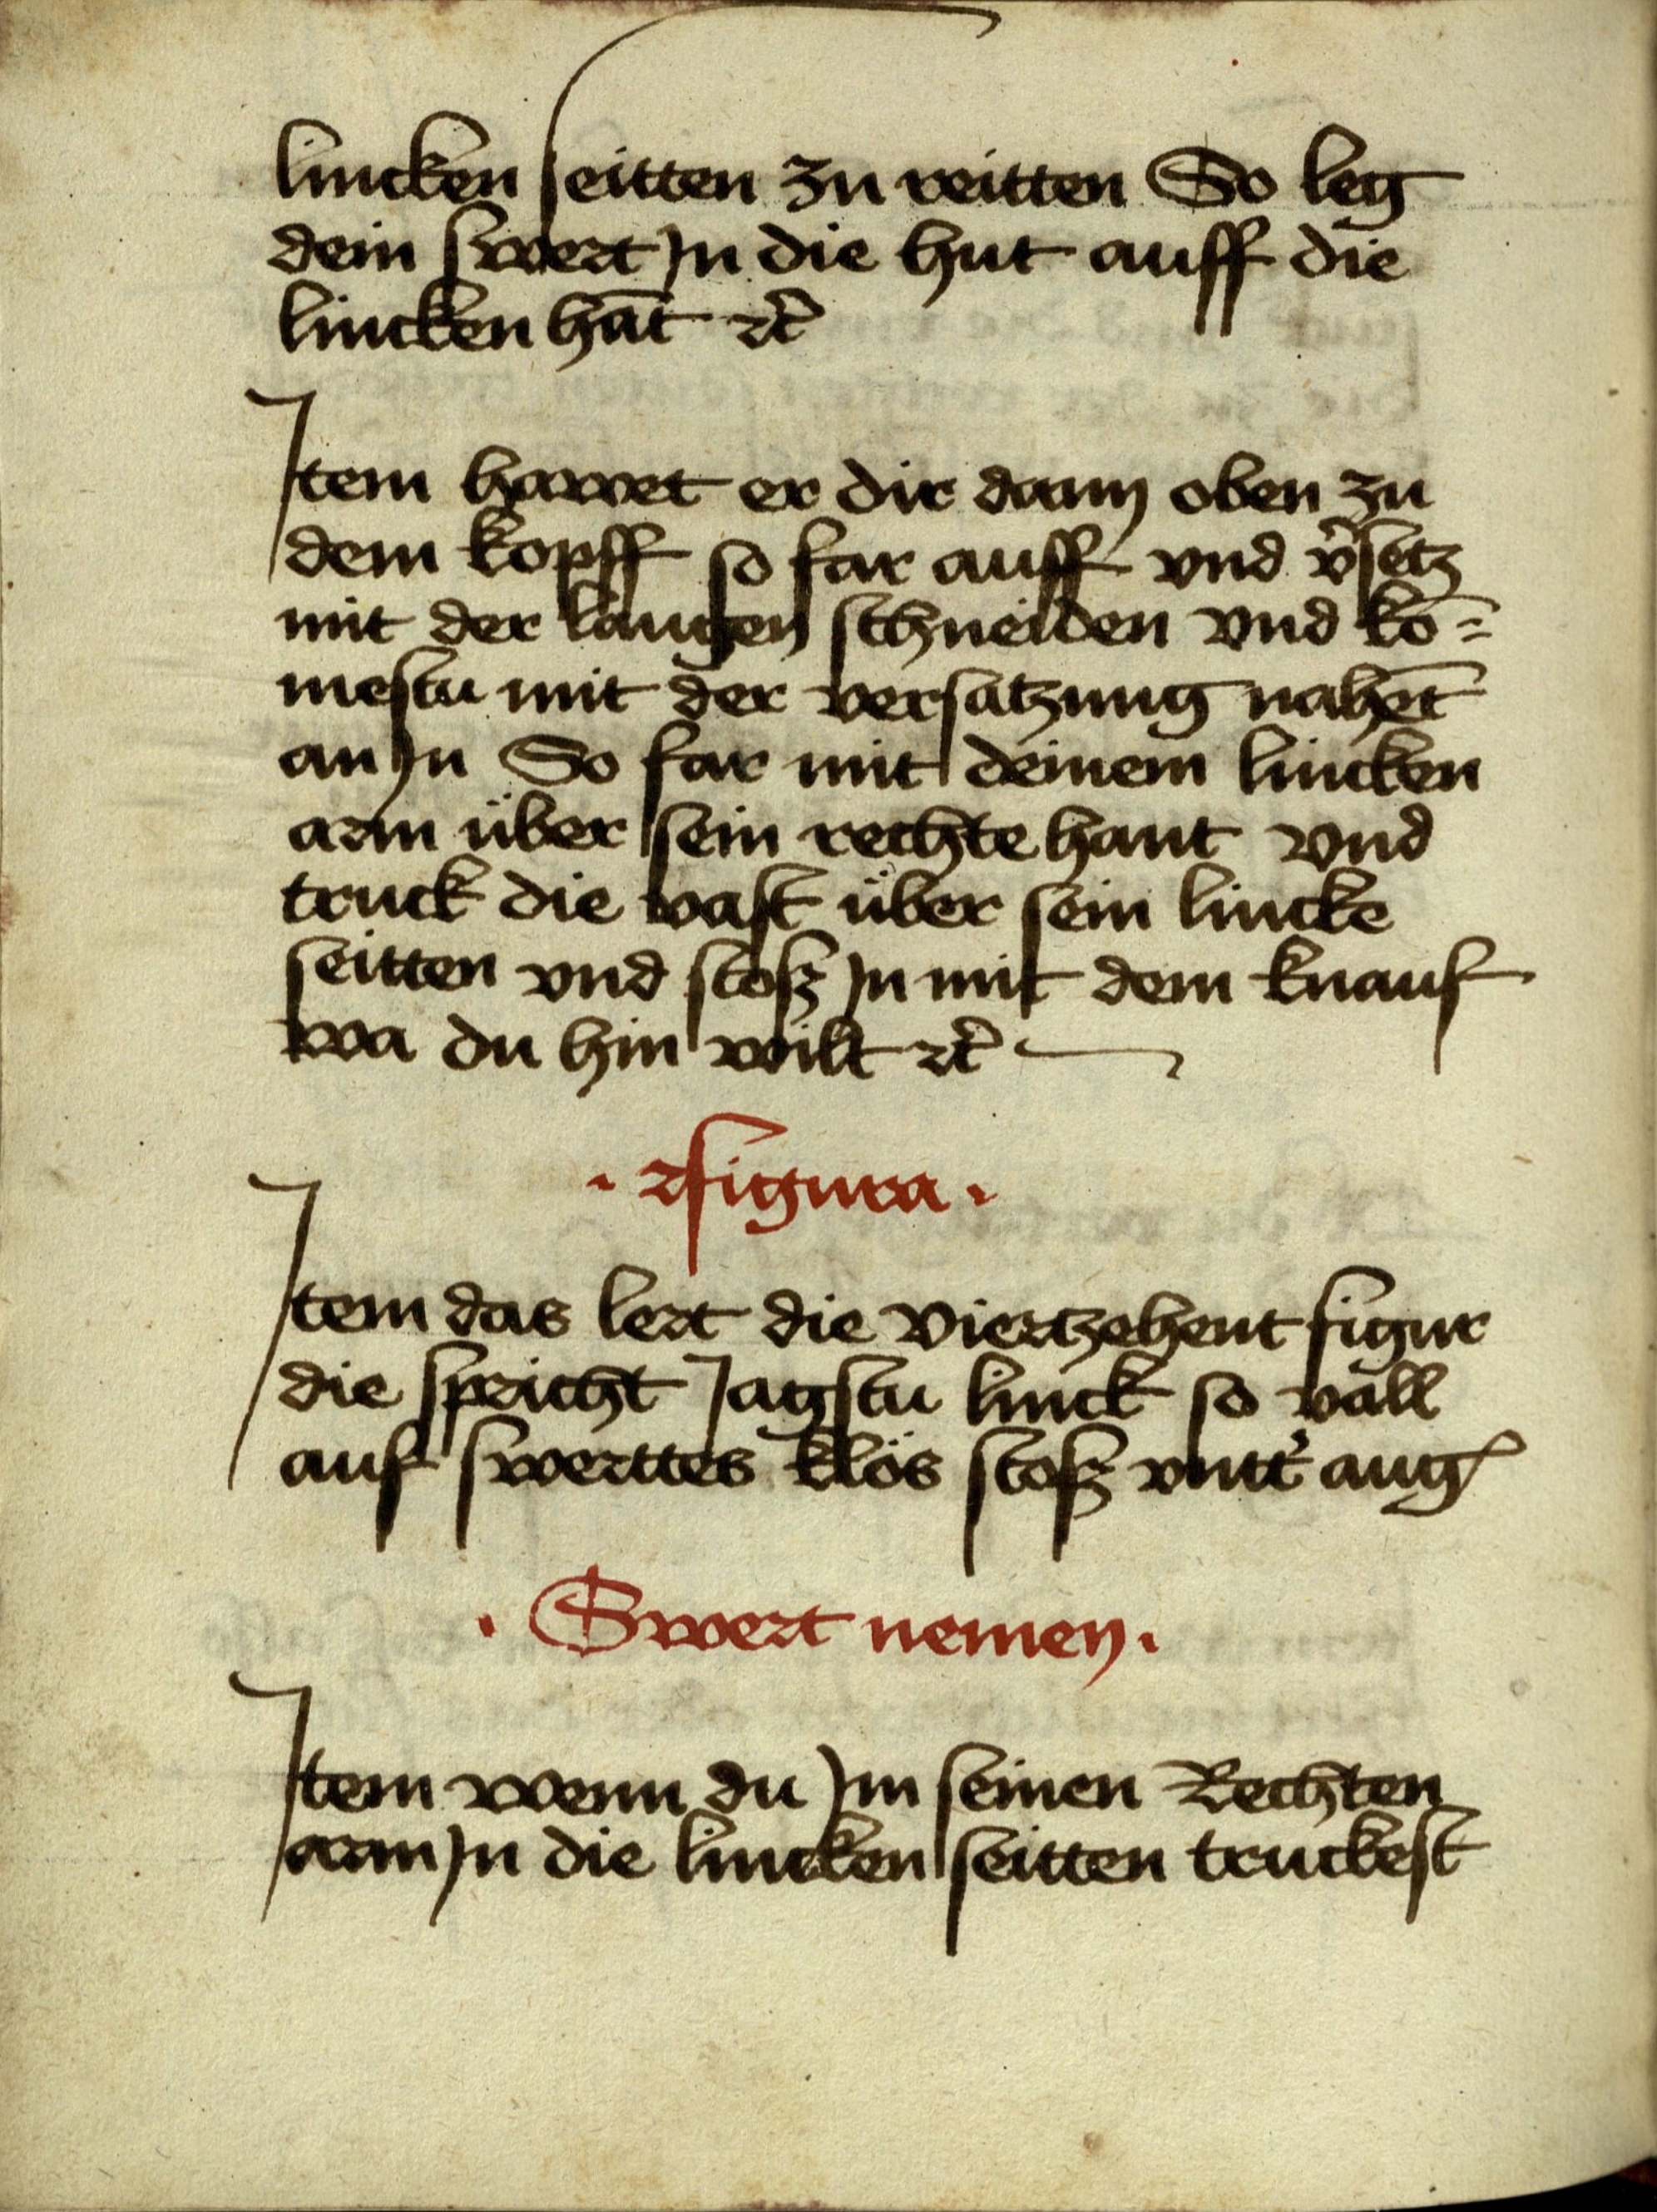 lincken seitten zu reitten So leg
dein swert Jn die hut auff die
lincken hāt ꝛc̄
Jtem hawet er dir dann oben zu
dem kopff so far auff vnd v̉setz
mit der langen schneiden vnd kō=
mestu mit der versatzung nahēt
an Jn So far mit deinem lincken
arm über sein rechte hant vnd
truck die vast über sein lincke
seitten vnd stoſz Jn mit dem knauf
wa du hin wilt ꝛc̄
· Figura ·
Jtem das lert die viertzehent figur
die spricht Jagstu linck so väll
auf swerttes klös stoſz vntt̉ aug
· Swert nemen ·
Jtem wenn du Jm seinen Rechten
arm Jn die lincken seitten truckest